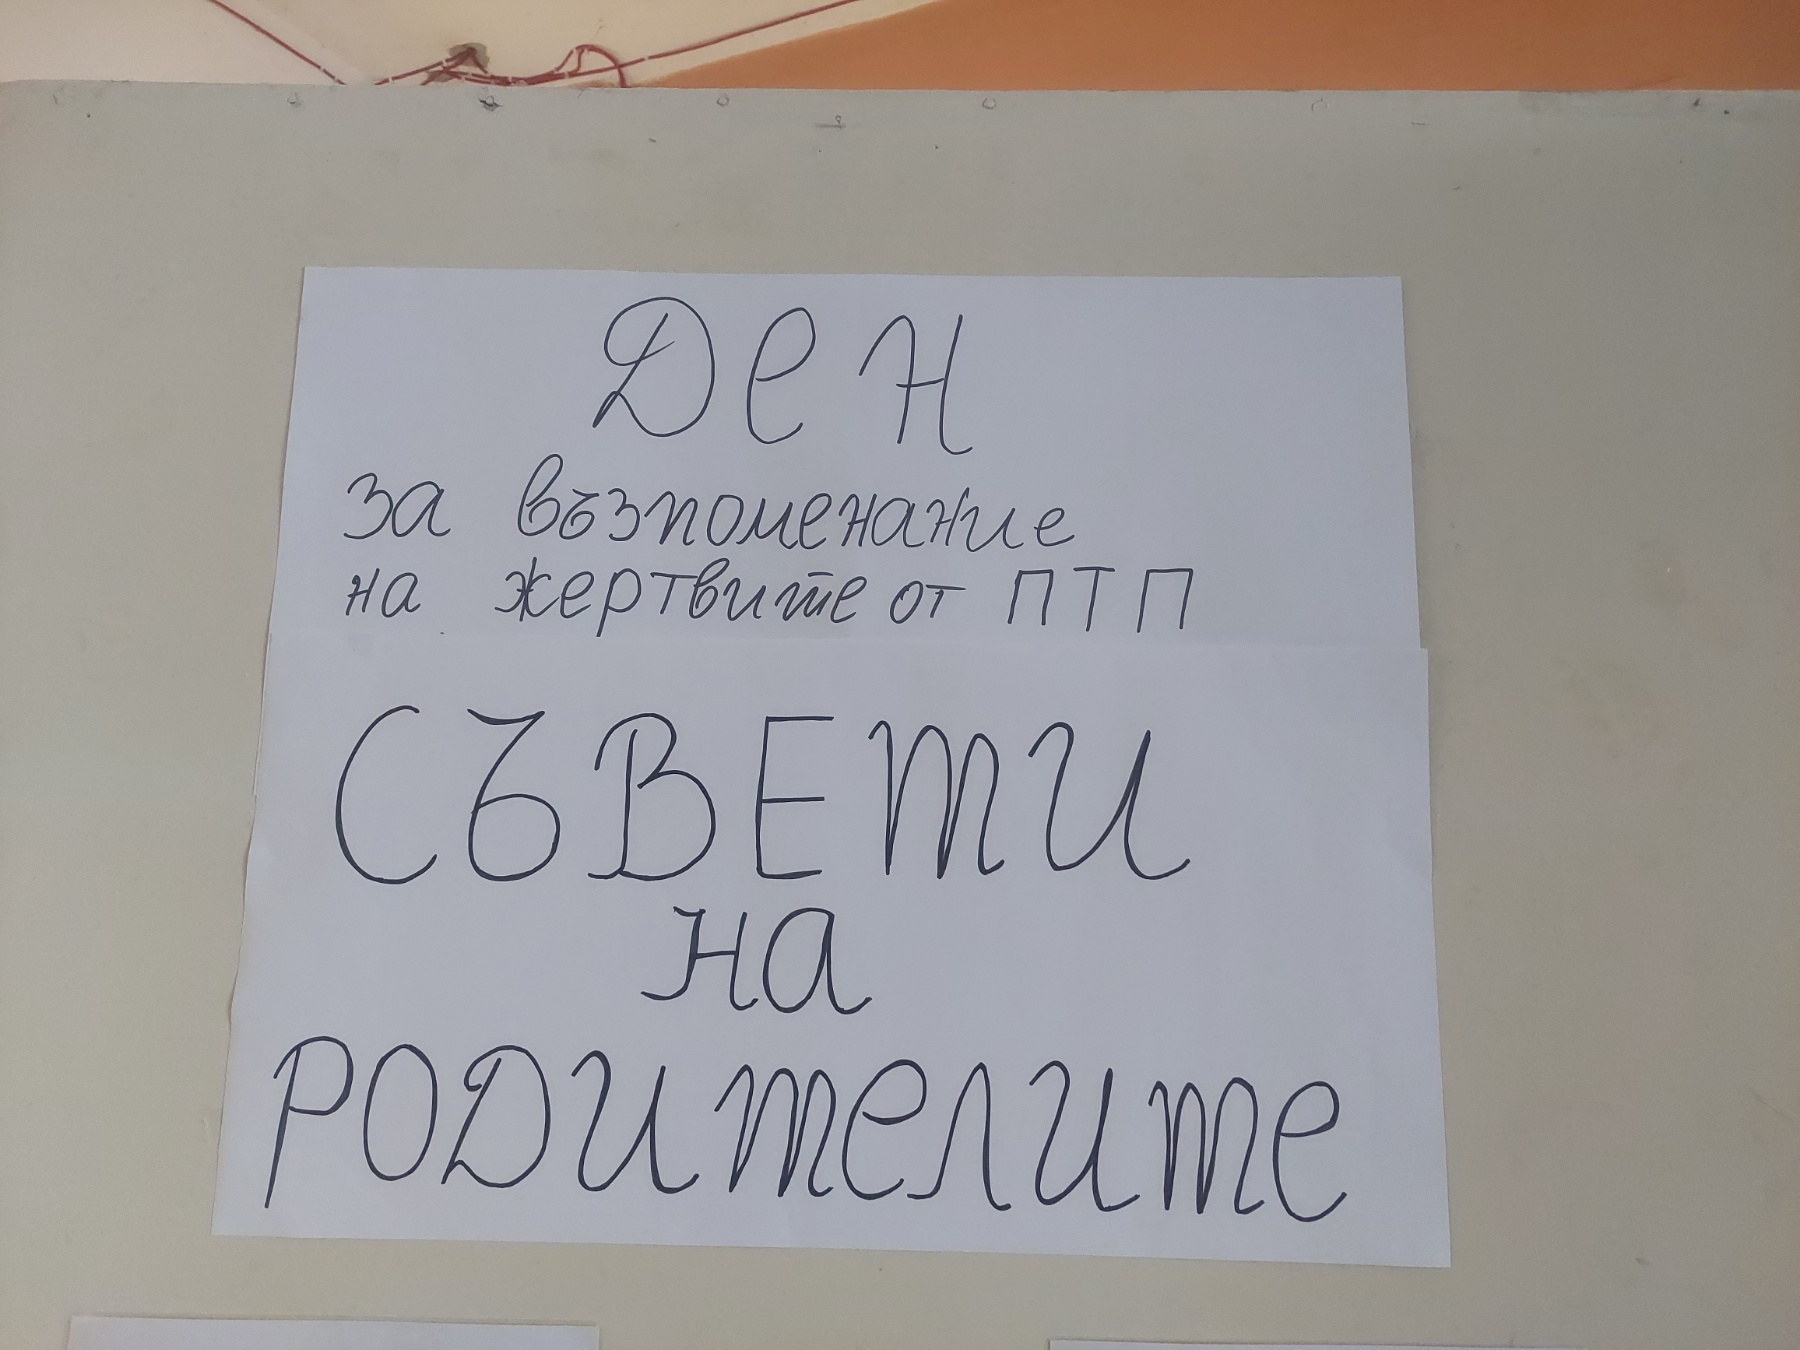 Ден
за възпоменание
на жертвите от ПТП
СЪВЕТИ
на
РОДителите